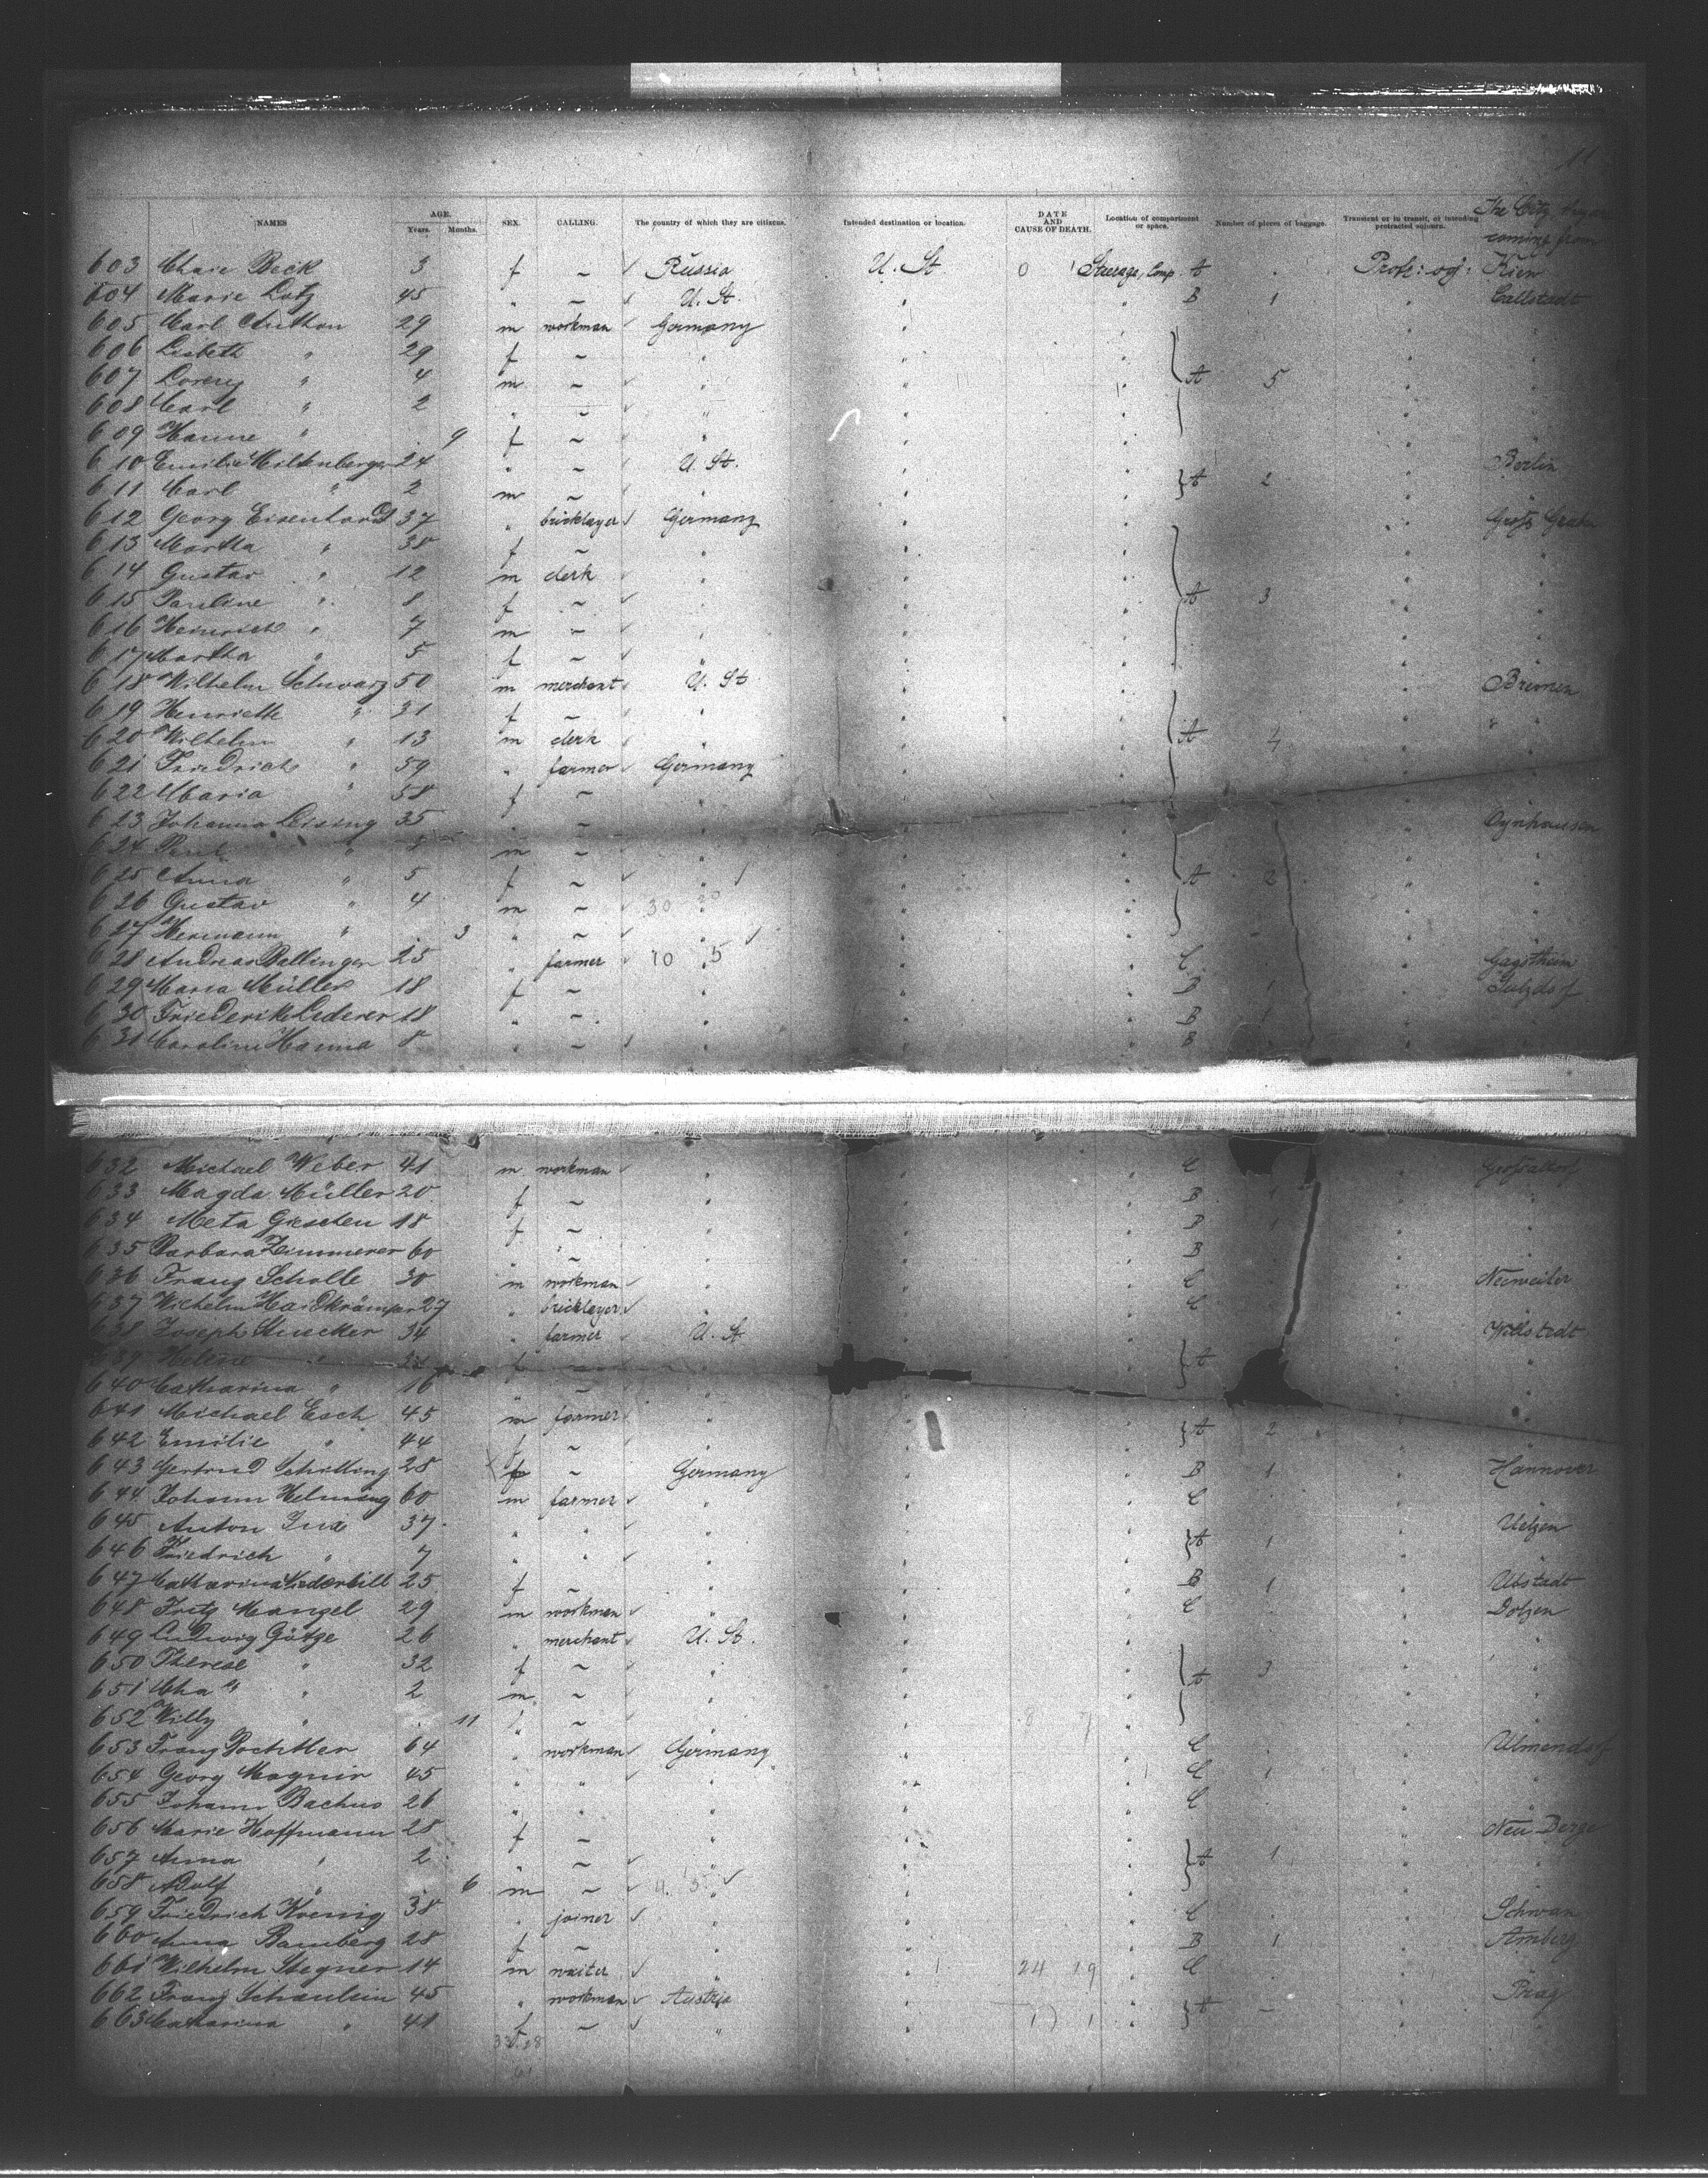 11
NAMES AGE. Years. Months. SEX. CALLING. The country of which they are citizens. Intended destination or location. DATE AND CAUSE OF DEATH. Location of compartment or space. Number of pieces of baggage. Transient or in transit, or intending protracted sojourn. The City they coming from
603 Beck 3 f ~ Russia U. St 0 Steerage, Comp. A Kiew
604 Marie Lutz 45 " ~ U. St. " " B 1 " Callstadt
605 Carl Anthon 29 m workman Germany " " "
606 Lisbeth " 29 f ~ " " " "
607 Lorenz " 4 m ~ " " " A 5 "
608 Carl " 2 " ~ " " " "
609 Hanne " 9 f ~ " " " "
610 Emilie Miltenberger 24 " ~ U. St. " " " Berlin
611 Carl " 2 m ~ " " " A 2 "
612 Georg Eisenhardt 37 " bricklayer Germany " " "
613 Martha " 38 f ~ " " " "
614 Gustav " 12 m clerk " " " "
615 Pauline " 8 f ~ " " " A 3 "
616 Heinrich " 7 m ~ " " " "
617 Martha " 5 f ~ " " " "
618 Wilhelm Schwarz 50 m merchant U. St " " " Bremen
619 Henriette " 31 f ~ " " " "
620 Wilhelm " 13 m clerk " " " A 4 " "
621 Friedrich " 59 " farmer Germany " " "
622 Maria " 58 f ~ " " " "
623 Johanna Leising 35 " ~ " " " " Oynhausen
624 Paul " 8 m ~ " " " "
625 Anna " 5 f ~ " " " A 2 "
626 Gustav " 4 m ~ " " " "
627 Hermann " 3 " ~ " " " "
628 Andreas Ballinger 25 " farmer " " " C " Gagstheim
629 Maria Müller 18 f ~ " " " B 1 "
630 Friederike Lederer 18 " ~ " " " B 1 "
631 Caroline Hanna 8 " ~ " " " B "
632 Michael Weber 41 m workman " " " C " Grossaltdorf
633 Magda Müller 20 f ~ " " " B 1 "
634 Meta Gieschen 18 f ~ " " " B 1 "
635 Barbara Zimmerer 60 " ~ " " " B "
636 Franz Scholle 30 m workman " " " C " Neuweiler
637 Wilhelm Haidkrämper 27 " bricklayer " " " C "
638 Joseph Stuecker 34 " farmer U. St " " " Willstedt
639 Helene " f ~ " " " A "
640 Catharina " 16 " ~ " " " "
641 Michael Esch 45 m farmer " " " "
642 Emilie " 44 f ~ " " " A 2 "
643 Gertrud Schilling 28 f ~ Germany " " B 1 " Hannover
644 Johann Helmseng 60 m farmer " " " C "
645 Anton Jux 37 " " " " " " Uelzen
646 Friedrich " 7 " " " " " A 1 "
647 Catharina Niederbill 25 f ~ " " " B 1 " Ubstadt
648 Fritz Mangel 29 m workman " " " C " Dolzen
649 Ludwig Götze 26 " merchant U. St. " " "
650 Therese " 32 f ~ " " " A 3 "
651 Chas " 2 m ~ " " " "
652 Willy " 11 " ~ " " " "
653 Franz Pochtler 64 " workman Germany " " C " Ulmendorf
654 Georg Magnir 45 " " " " " C 1 "
655 Johann Bachus 26 " " " " " C "
656 Marie Hoffmann 28 f ~ " " " "
657 Anna " 2 " ~ " " " A 1 "
658 Adolf " 6 m ~ " " " "
659 Friedrich Koenig 38 " joiner " " " C " Schwan
660 Anna Bamberg 28 f ~ " " " B 1 " Amberg
661 Wilhelm Stegner 14 m waiter " " 24 19 " C "
662 Franz Schaulein 45 " workman Austria " " A ~ " Prag
663 Catharina " 41 f ~ " " " "